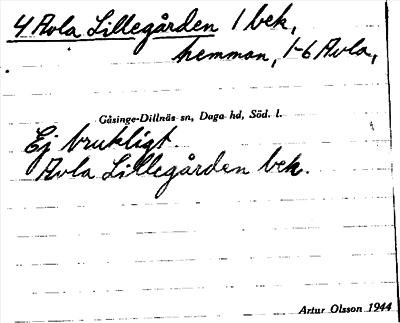 4 Avla Lillegården 1 bek.
hemman, 1-6 Avla,
Gåsinge-Dillnäs sn, Daga hd, Söd. l.
Ej brukligt.
Avla Lillegården bek.
Artur Olsson 1944